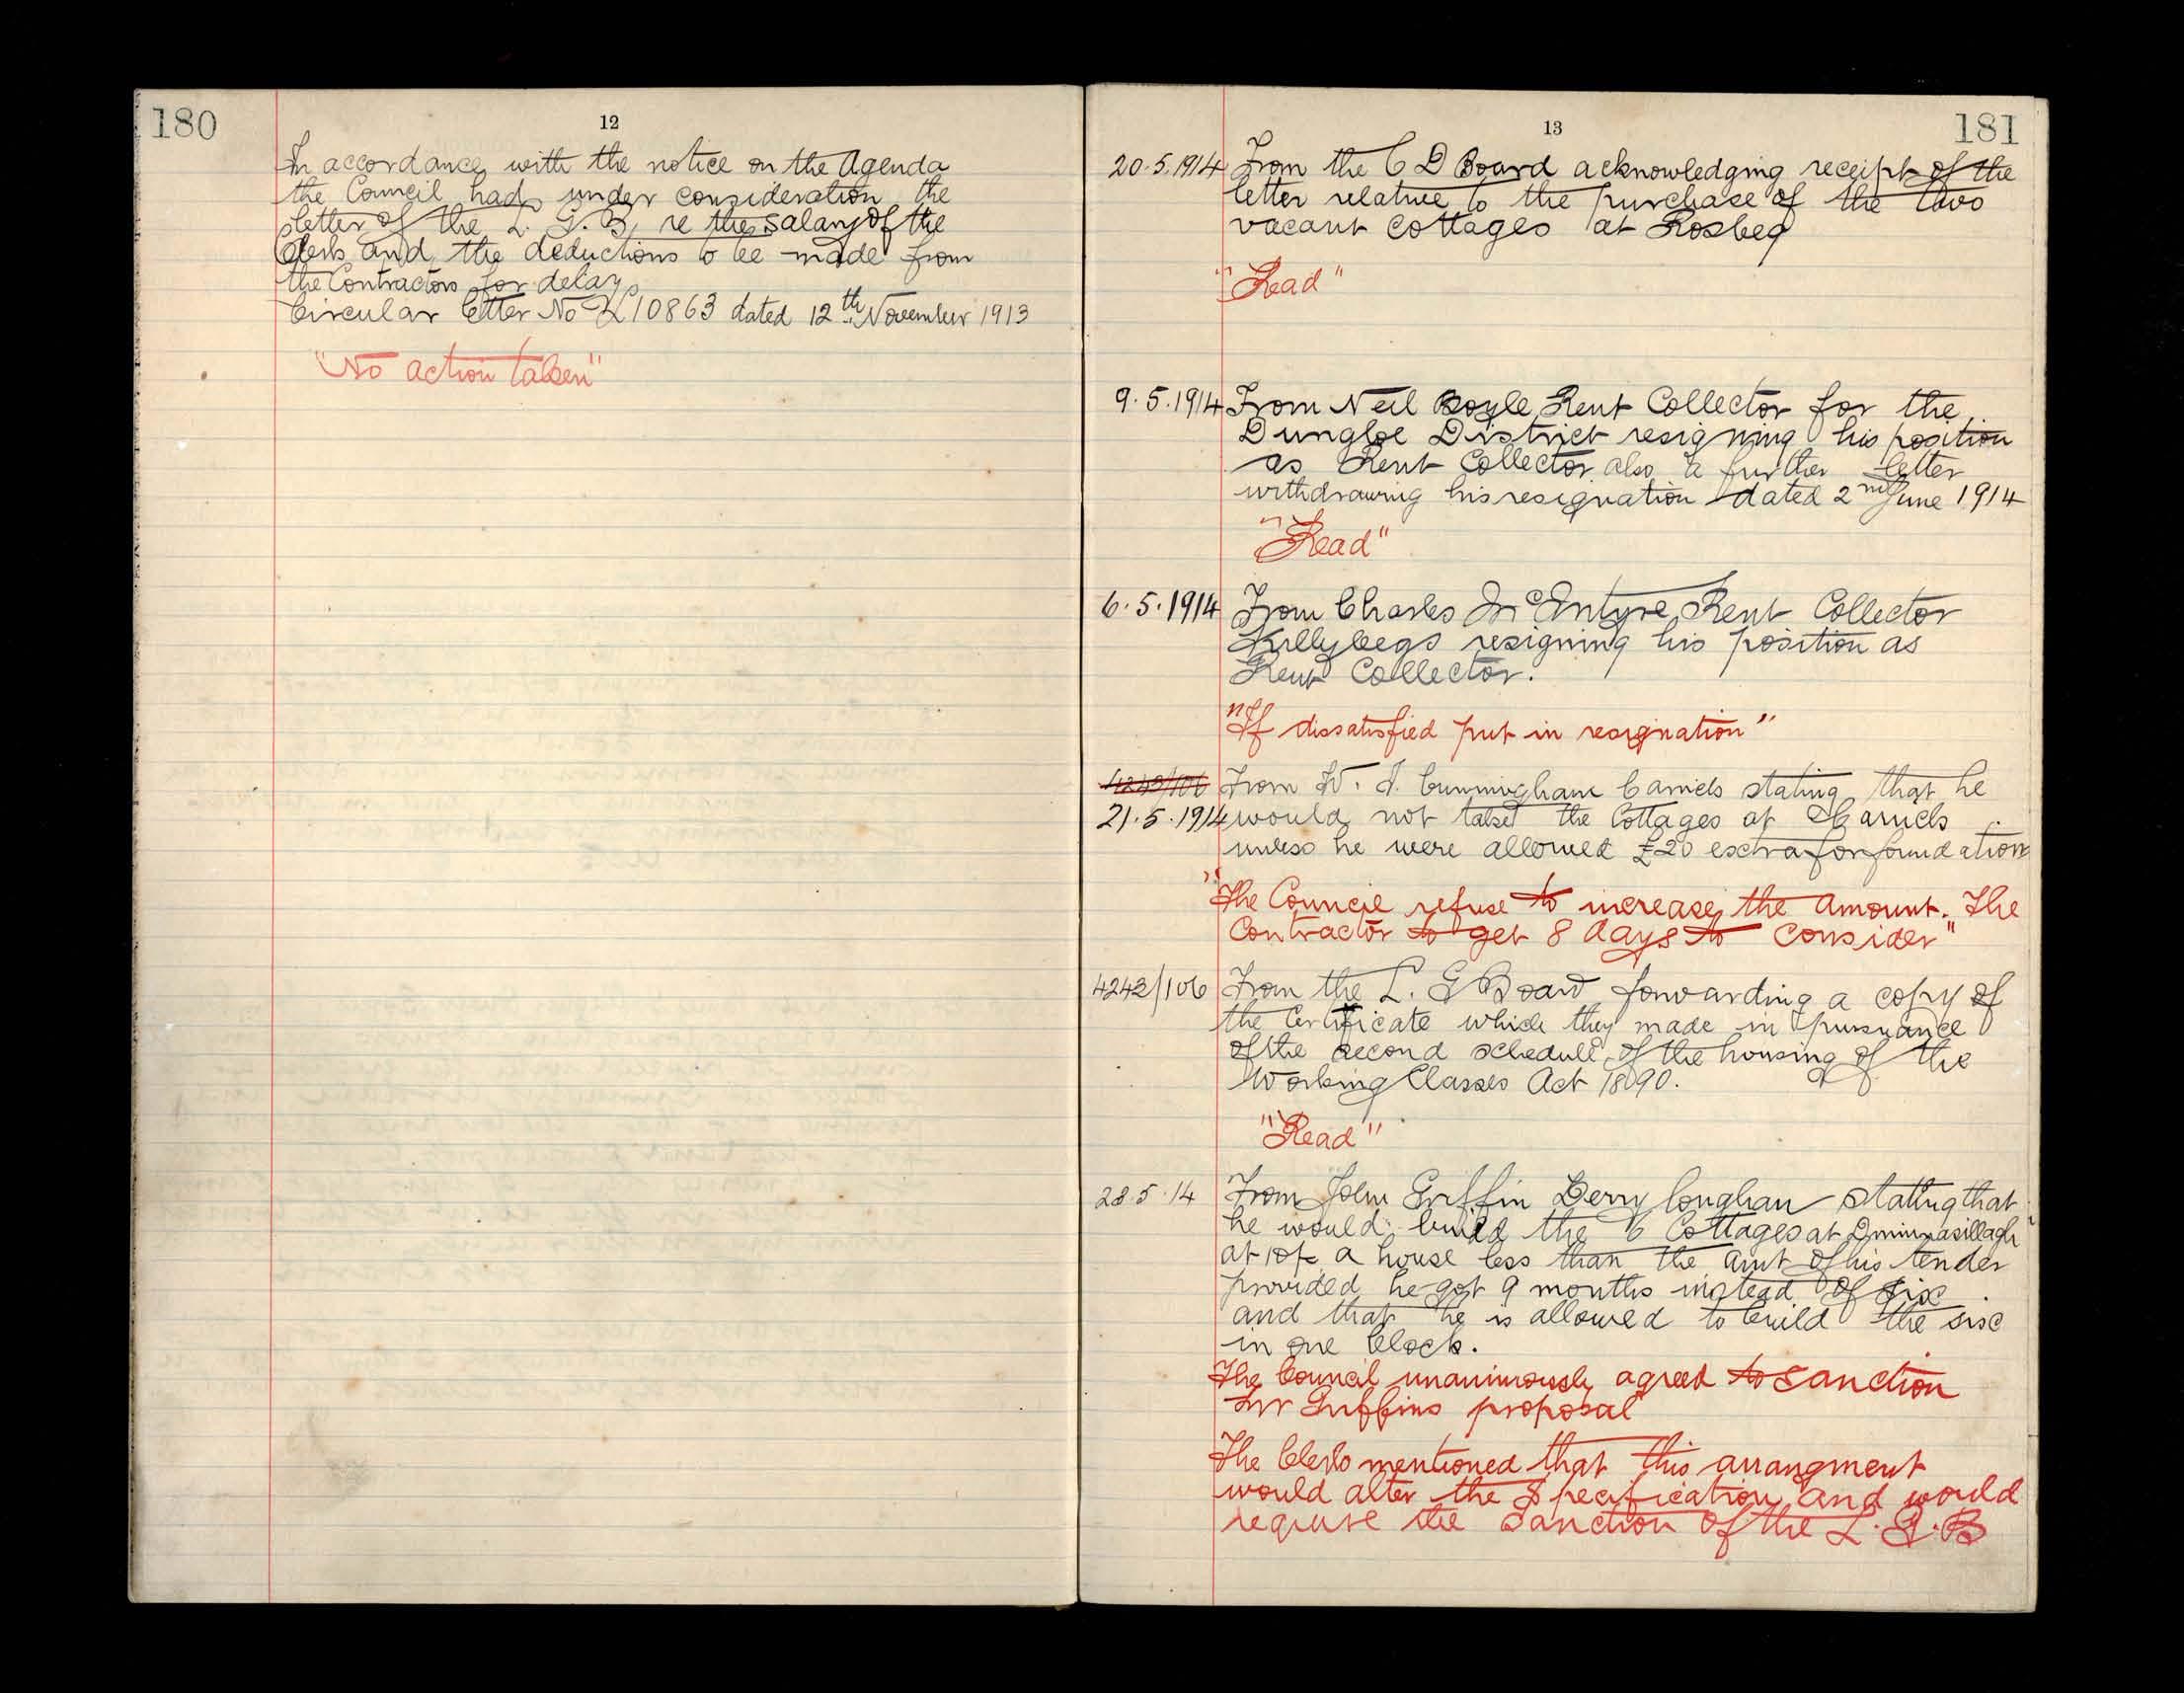 180
12
In accordance with the notice on the Agenda
the Council had under consideration the
letter of the L. G. B. re the salary of the
Clerk and the deductions to be made from
the Contractors for delay
Circular letter No 10863 dated 12th November 1913
"No action taken"
13
181
20.5.1914 From the C D Board acknowledging receipt of the
letter relative to the purchase of the two
vacant cottages at Rosbeg
"Read"
9.5.1914 From Neil Boyle Rent Collector for the
Dungloe District resigning his position
as Rent Collector also a further letter
withdrawing his resignation dated 2nd June 1914
"Read"
6.5.1914 From Charles McEntyre Rent Collector
Killybegs resigning his position as
Rent Collector.
"If dissatisfied put in resignation"
4243/106 From Cunningham Carrick stating that he
21.5.1914 would not take the Cottages at Carrick
unless he were allowed £20 extra for foundation
"The Council refuse to increase the amount. The
Contractor to get 8 days to consider"
4243/106 From the L. G Board forwarding a copy of
the Certificate which they made in pursuance
of the second schedule of the housing of the
Working Classes Act 1890.
"Read"
28.5.14 From John Griffin Derry Conghan stating that
he would build the 6 Cottages at
at 10/- a house less than the amt of his tender
provided he got 9 months instead of six
and that he is allowed to build the six
in one block.
The Council unanimously agreed to sanction
Mr Griffins proposal
The Clerk mentioned that this arrangment
would alter the Specification and would
require the sanction of the L. G. B